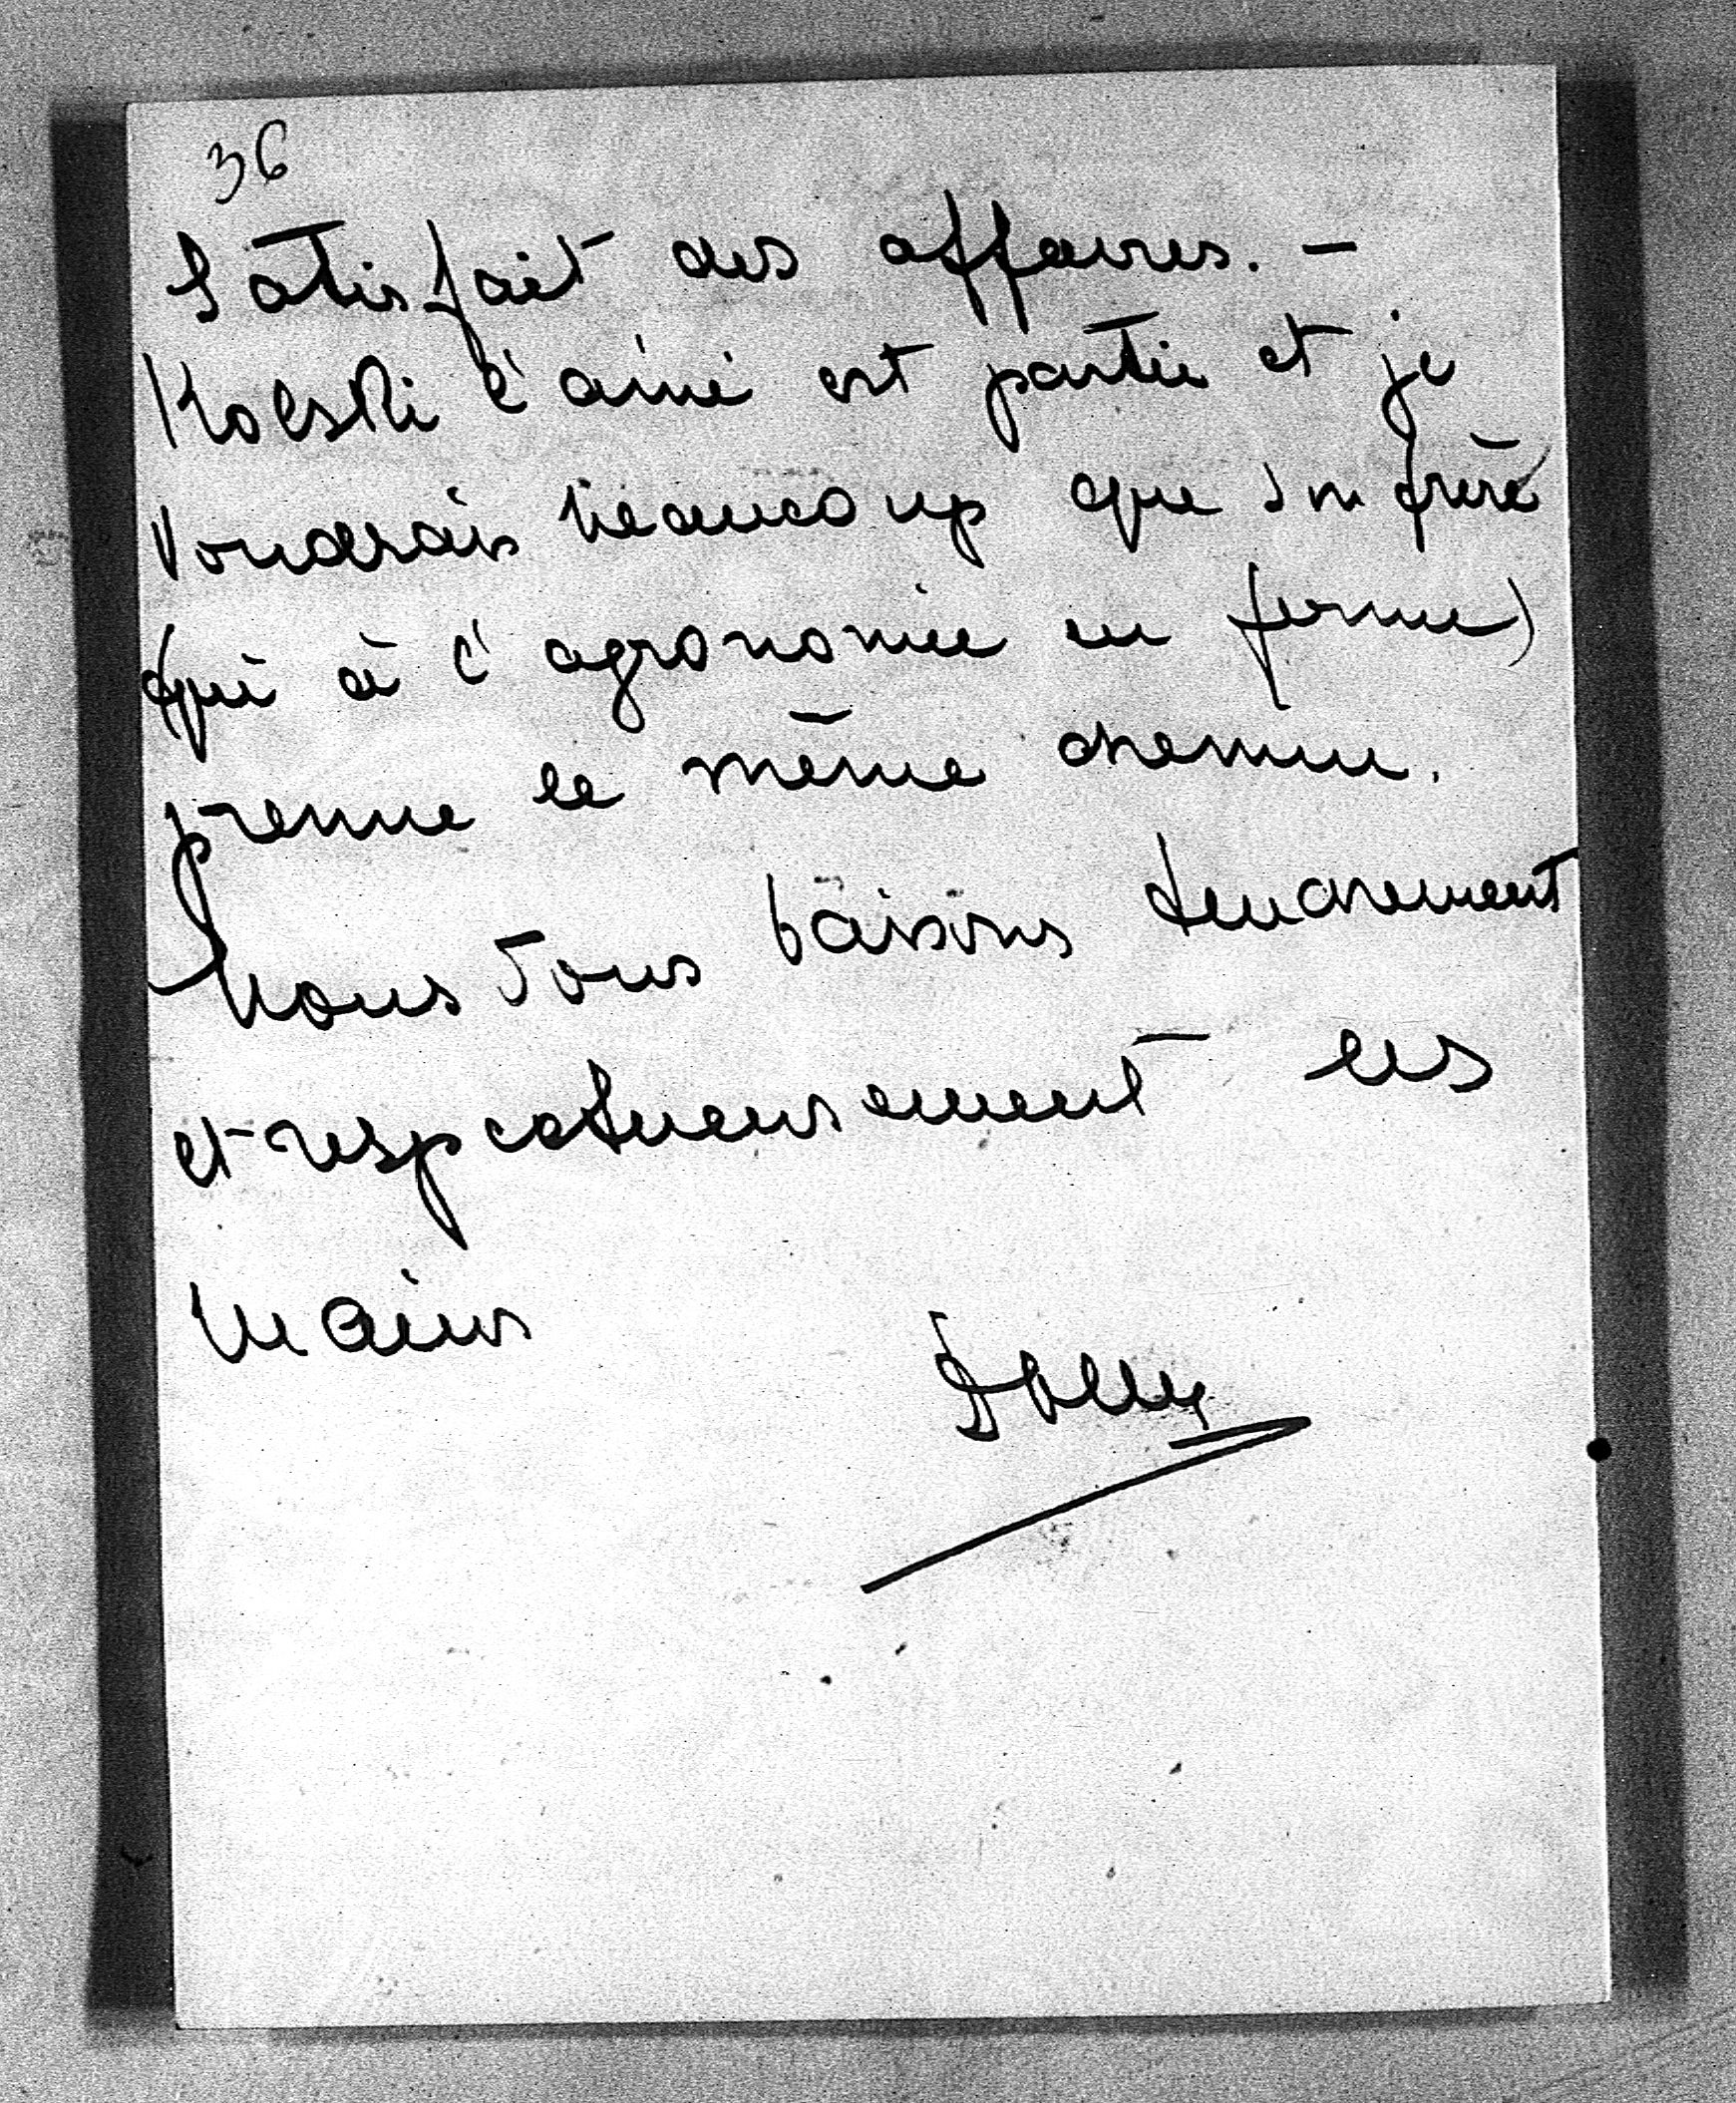 36
Satisfait des affaires. —
Kolski l'ainé est partie et je
voudrais beaucoup que son frère
(qui à l'agronomie en ferme)
prenne le même chemin.
Nous vous baisons tendrement
et respectueusement les
mains
Dolly